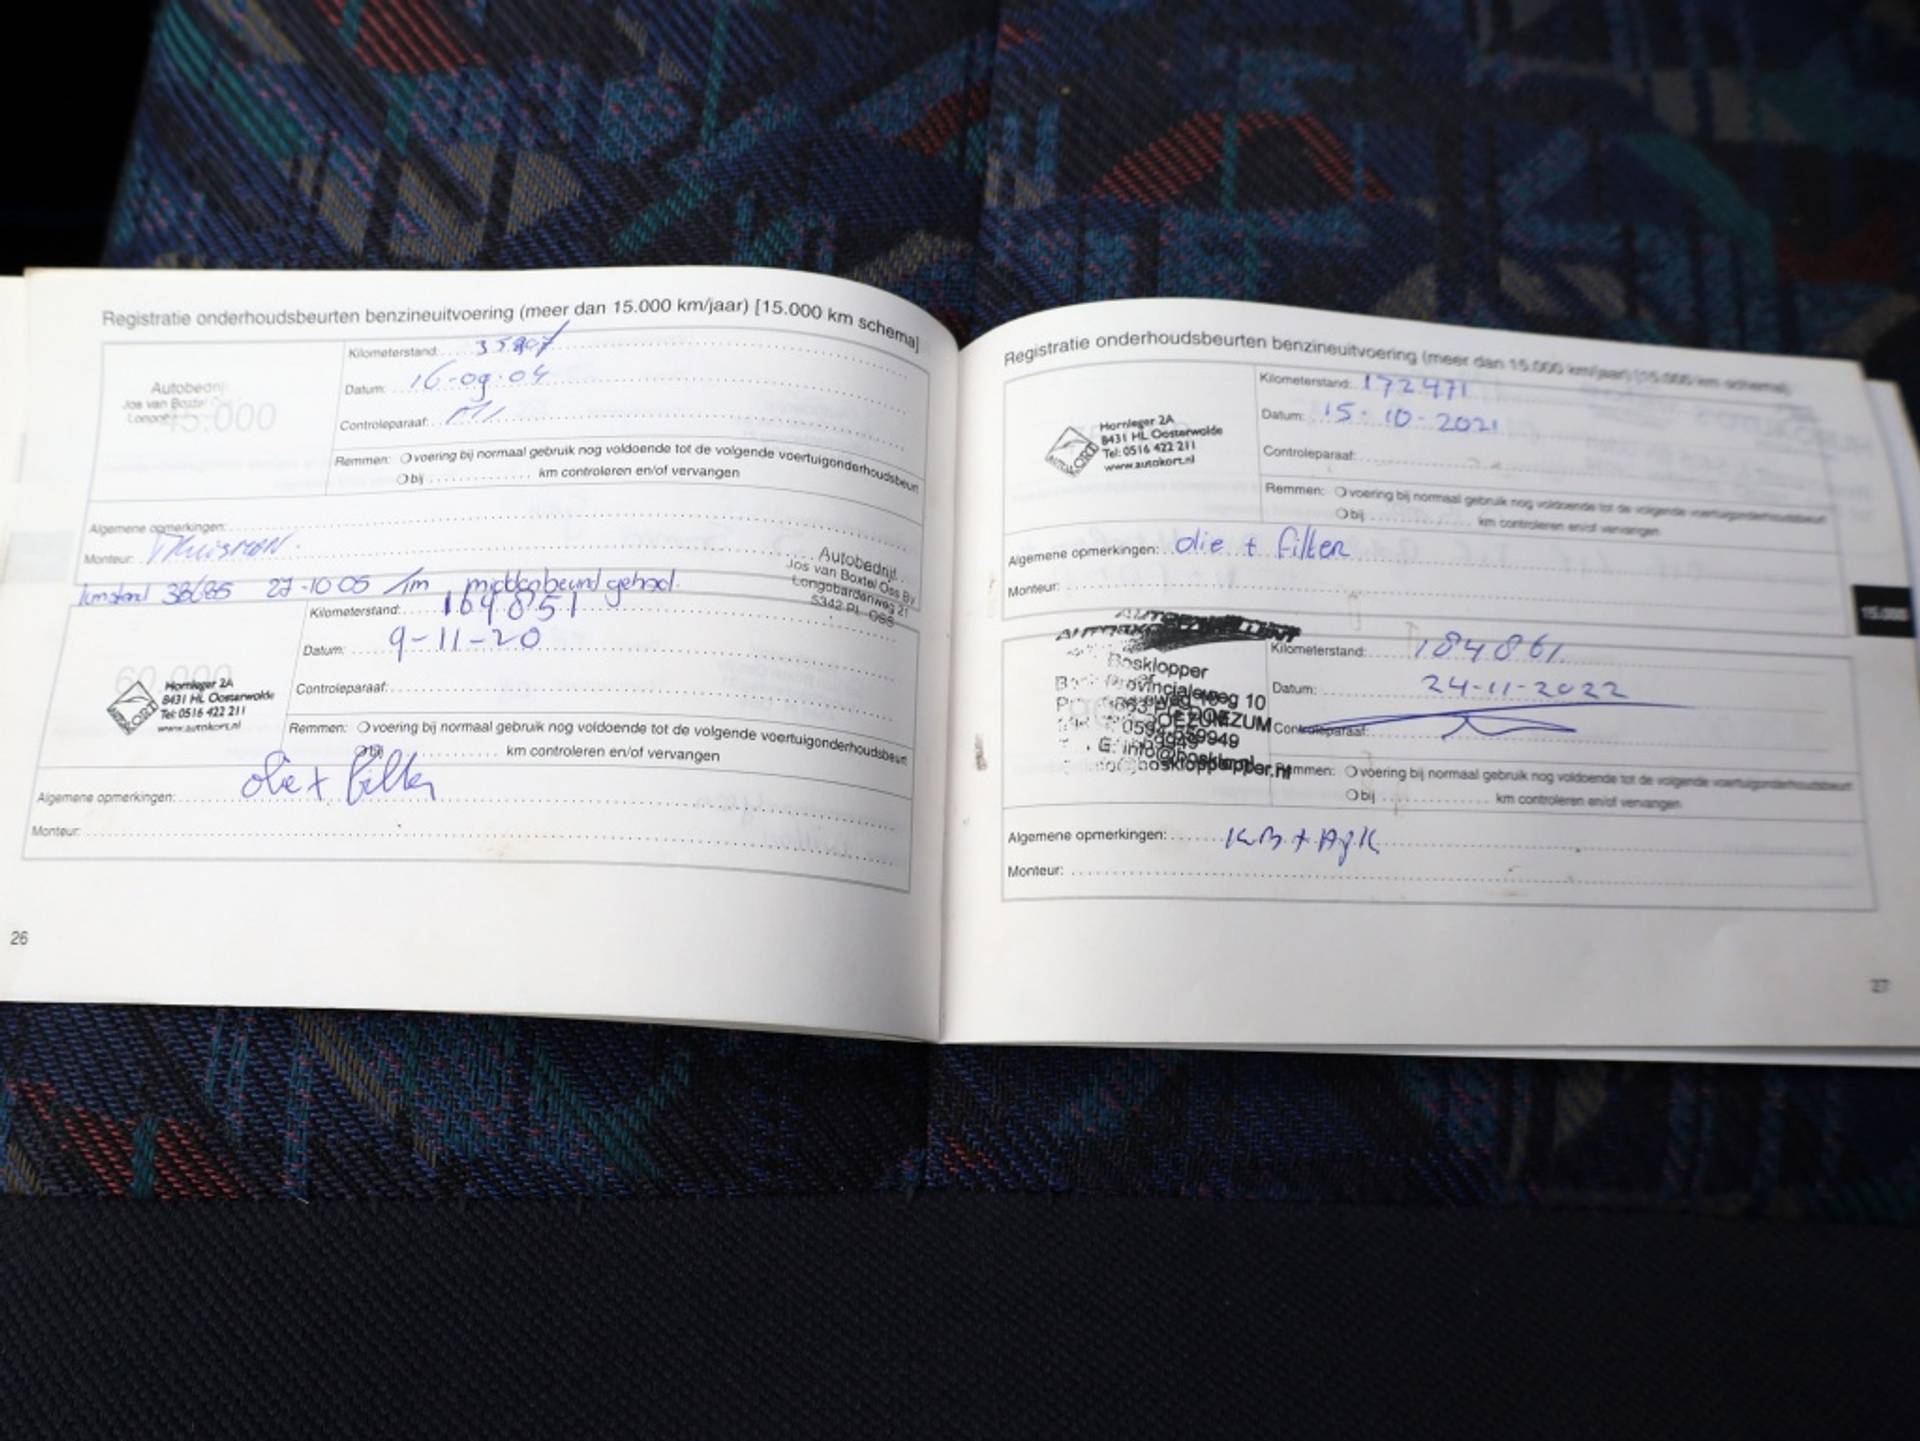 Registratie onderhoudsbeurten benzineuitvoering (meer dan 15.000 km/jaar) [15.000 km schema]
Autobedrijf
Jos van Boxtel
45.000
Kilometerstand:
Datum: 16-09-04
Controleparaaf:
Remmen: voering bij normaal gebruik nog voldoende tot de volgende voertuigonderhoudsbeurt
bij km controleren en/of vervangen
Algemene opmerkingen:
Monteur:
27-10-05
Autobedrijf
Jos van Boxtel Oss BV
Longobardenweg 21
5342 PL OSS
60.000
AUTOKORT
Hornleger 2A
8431 HL Oosterwolde
Tel: 0516 422 211
www.autokort.nl
Kilometerstand: 164851
Datum: 9-11-20
Controleparaaf:
Remmen: voering bij normaal gebruik nog voldoende tot de volgende voertuigonderhoudsbeurt
bij km controleren en/of vervangen
Algemene opmerkingen: olie + filter
Monteur:
26
Registratie onderhoudsbeurten benzineuitvoering (meer dan 15.000 km/jaar) [15.000 km schema]
AUTOKORT
Hornleger 2A
8431 HL Oosterwolde
Tel: 0516 422 211
www.autokort.nl
Kilometerstand: 172471
Datum: 15-10-2021
Controleparaaf:
Remmen: voering bij normaal gebruik nog voldoende tot de volgende voertuigonderhoudsbeurt
bij km controleren en/of vervangen
Algemene opmerkingen: olie + filter
Monteur:
15.000
Bosklopper
Kilometerstand: 184861
Datum: 24-11-2022
Controleparaaf:
Remmen: voering bij normaal gebruik nog voldoende tot de volgende voertuigonderhoudsbeurt
bij km controleren en/of vervangen
Algemene opmerkingen:
Monteur:
27